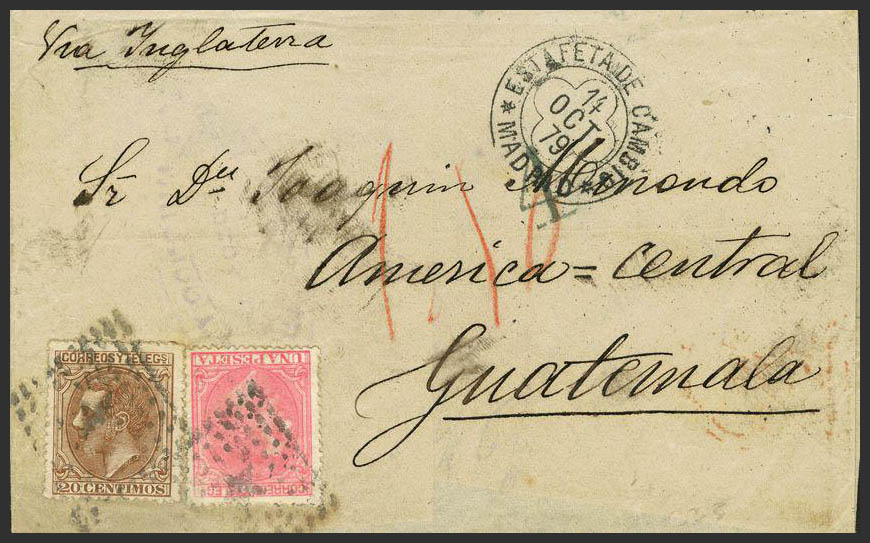 Via Inglaterra
* ESTAFETA DE CAMBIO * MADRID
14
OCT
79
4
Sr. Dn Joaquin
America = Central
Guatemala
CORREOS Y TELEGS
20 CENTIMOS
UNA PESETA